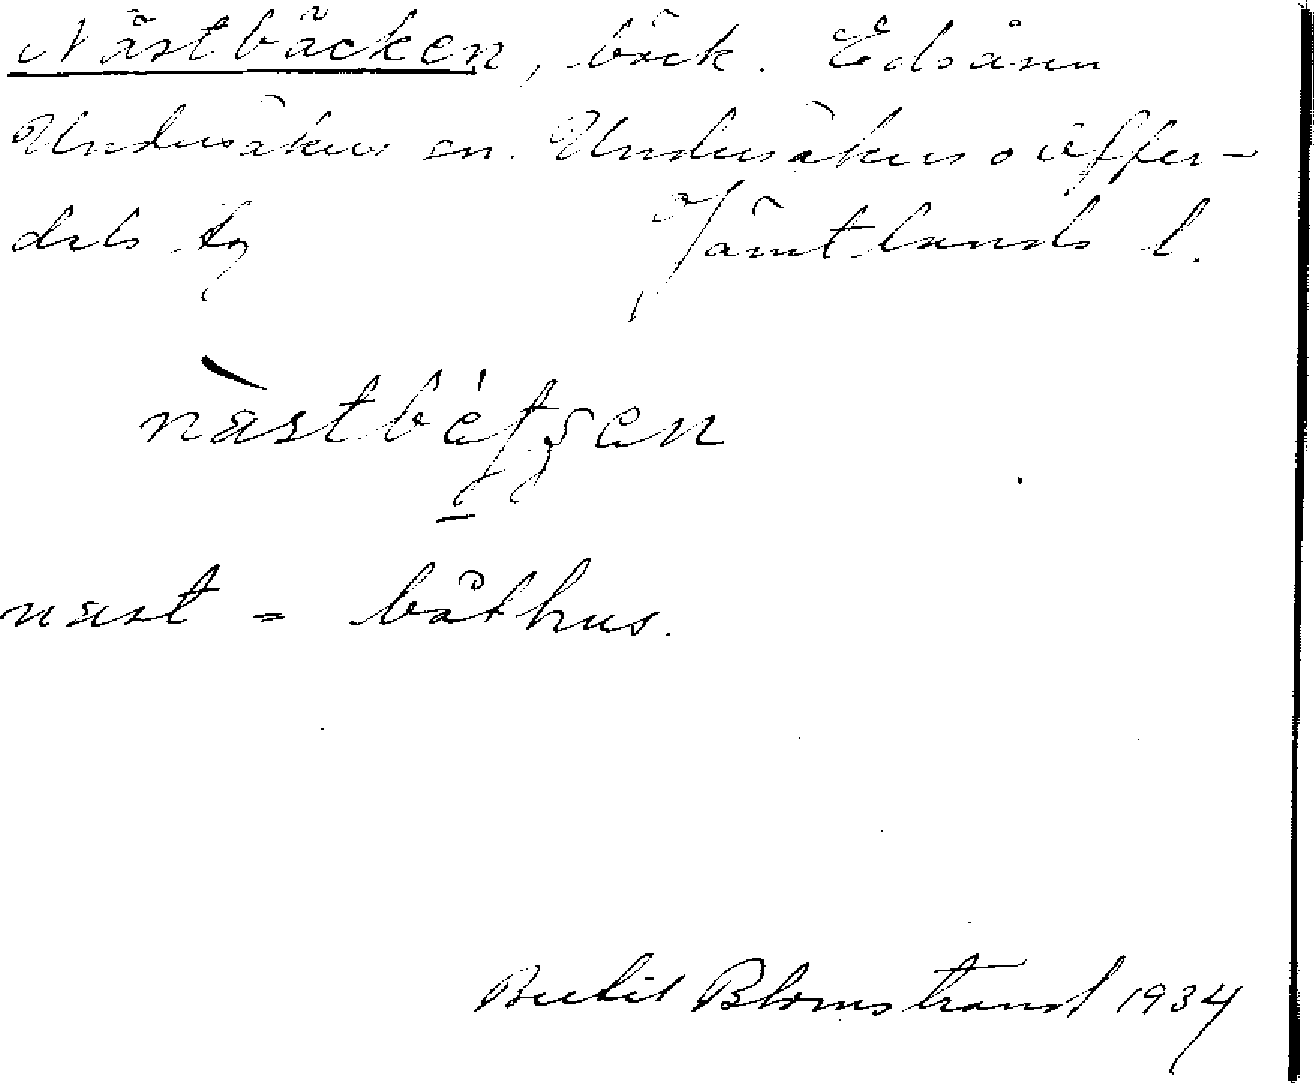 Nästbäcken, bäck. Edsåsen
Undersåkers sn. Undersåkers o Offer-
dals tg Jämtlands l.
näst = båthus.
Bertil Blomstrand 1934